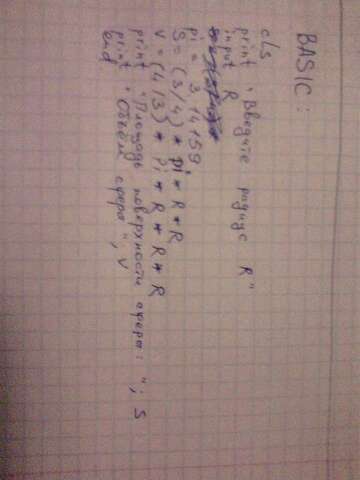 BASIC:
cls
print "Введите радиус R"
input R
pi = 3.14159
S = (3/4) * pi * R * R
V = (4/3) * pi * R * R * R
print "Площадь поверхности сферы: "; S
print "Объём сферы", V
end